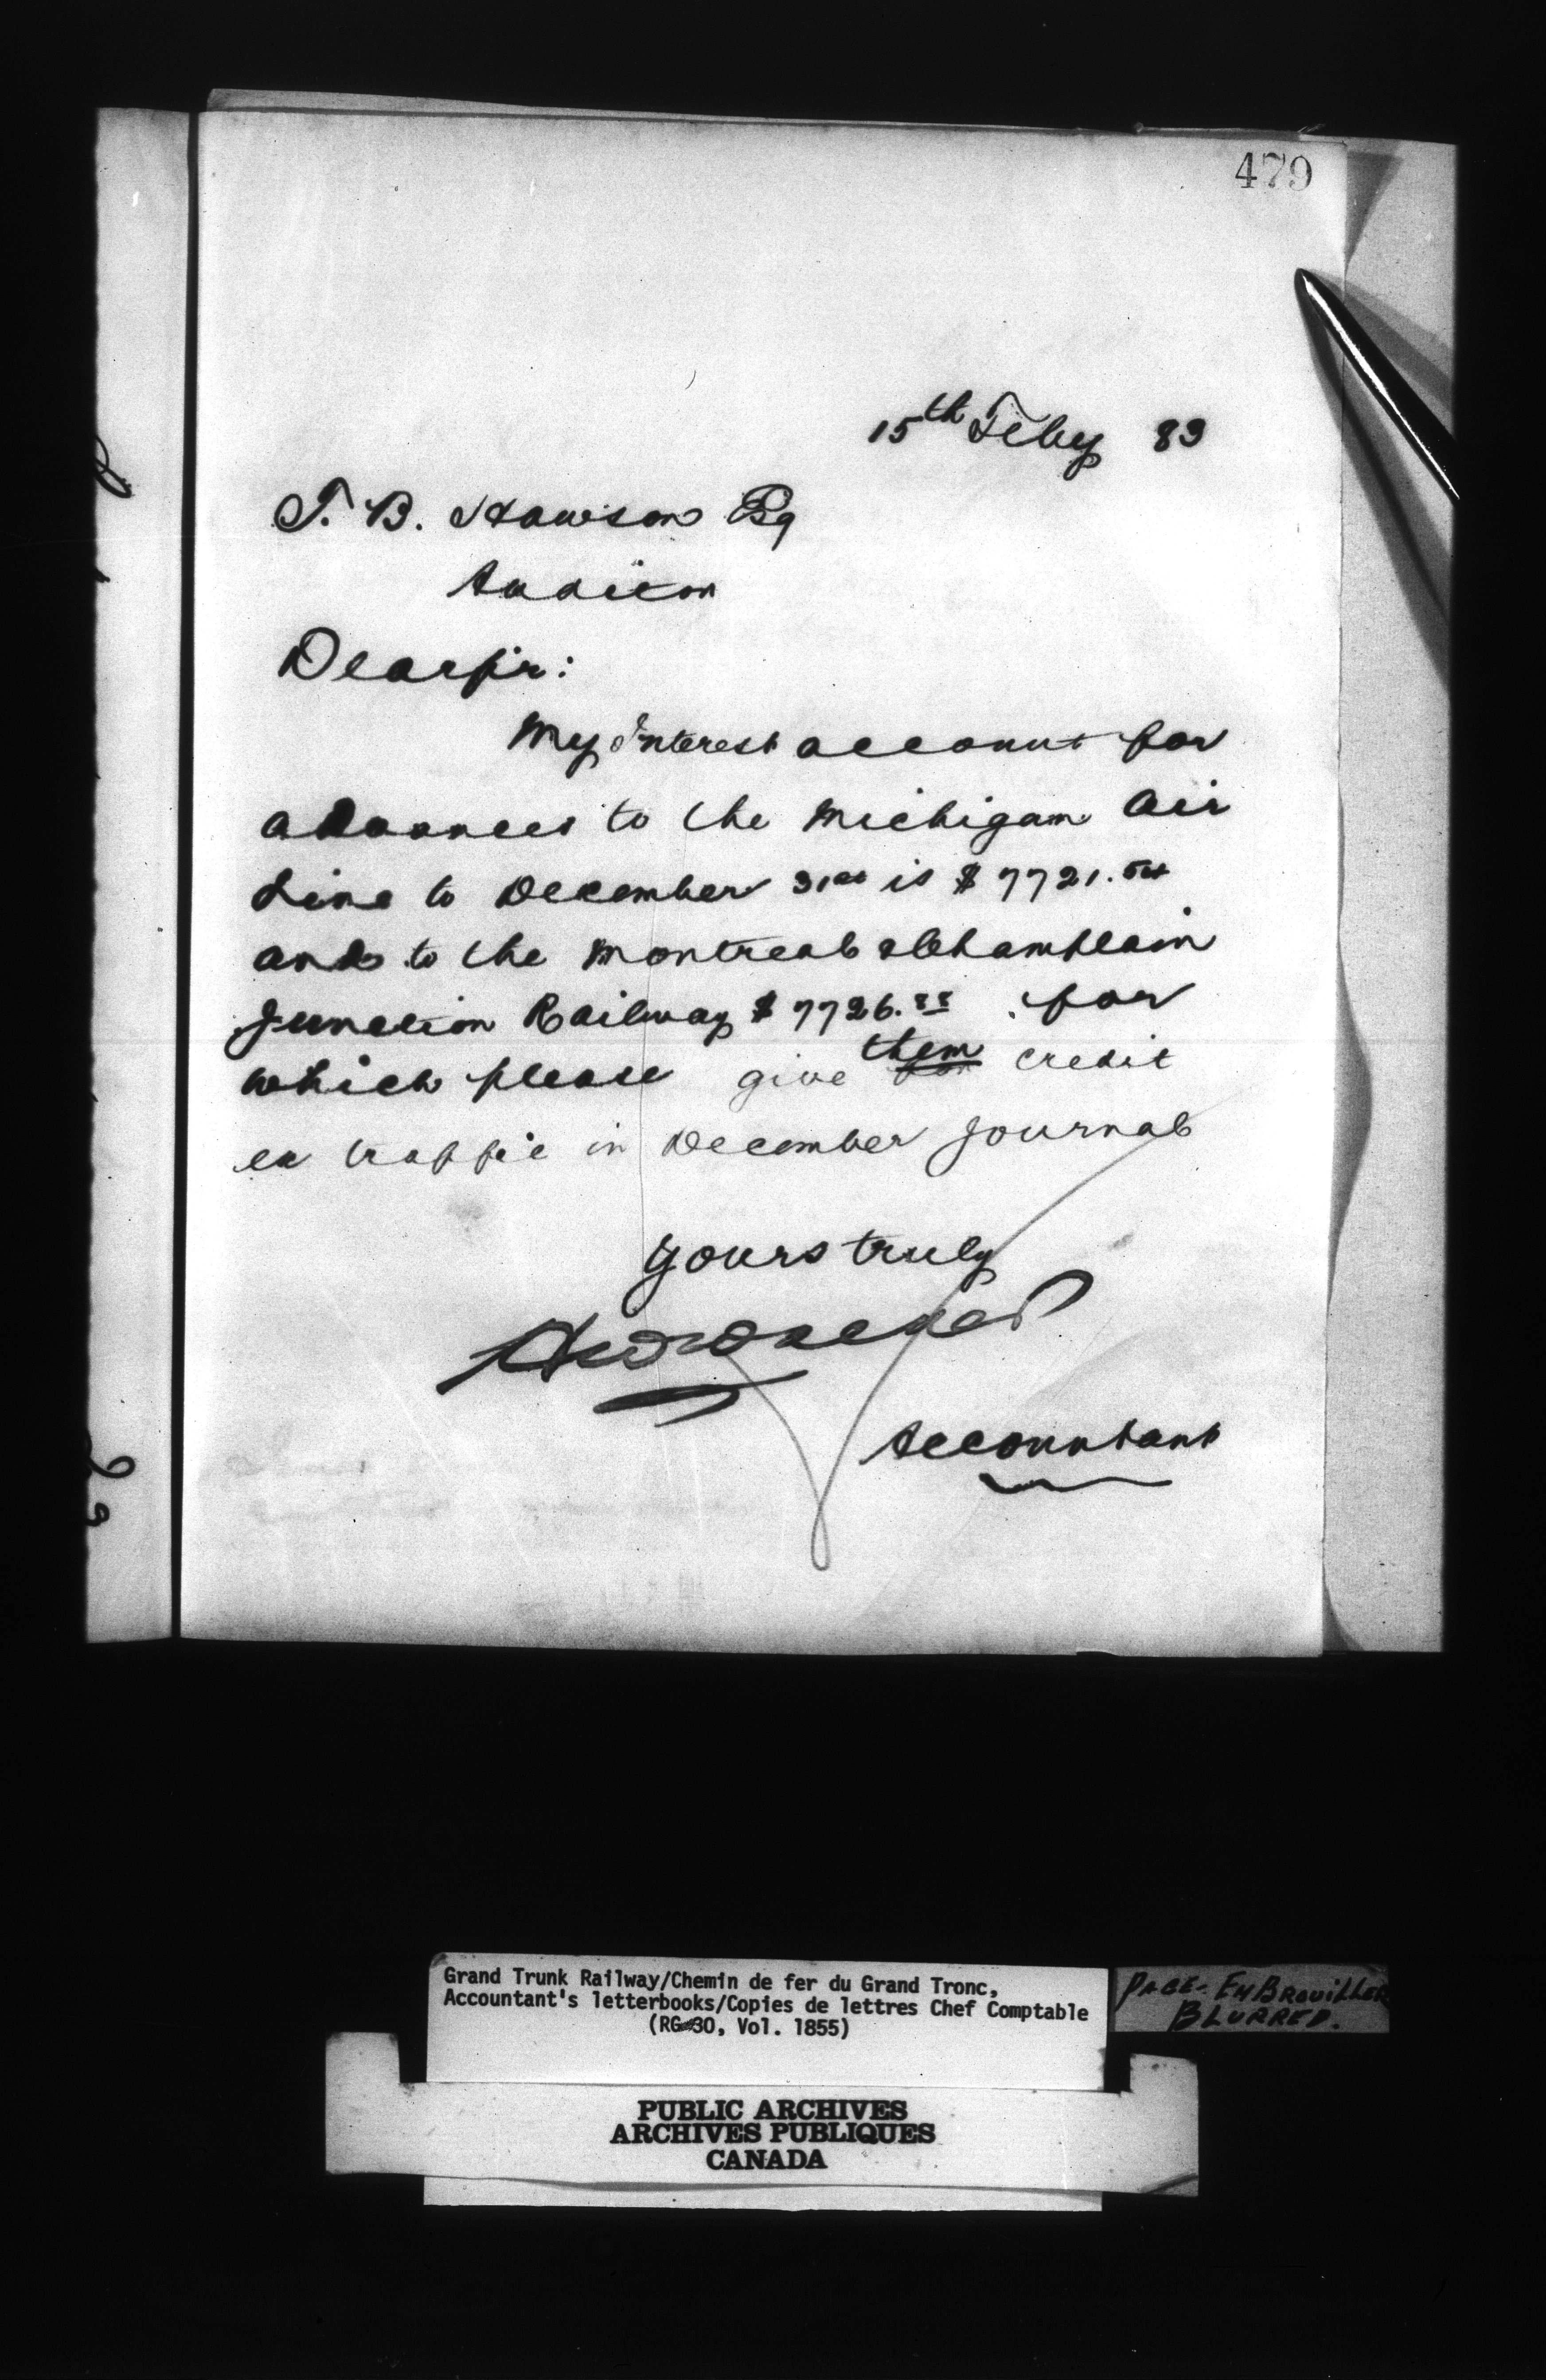 479
15th Feby 83
T. B. Hawson Esq
Auditor
Dear Sir:
My Interest account for
advances to the Michigan Air
Line to December 31st is $7721.
and to the Montreal & Champlain
Junction Railway $7726.88 for
which please give them for credit
ex traffic in December Journal
Yours truly
Accountant
Grand Trunk Railway/Chemin de fer du Grand Tronc,
Accountant's letterbooks/Copies de lettres Chef Comptable
(RG 30, Vol. 1855)
PAGE - EMBROUILLER
BLURRED.
PUBLIC ARCHIVES
ARCHIVES PUBLIQUES
CANADA